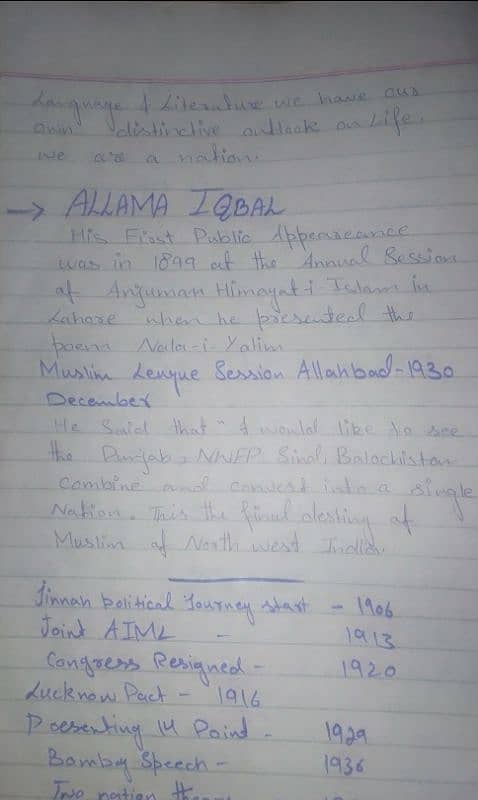 Language & Literature we have our
own distinctive outlook on Life.
we are a nation.
→ ALLAMA IQBAL
His First Public Appearance
was in 1899 at the Annual Session
of Anjuman Himayat-i-Islam in
Lahore when he presented the
poem Nala-i-Yatim
Muslim League Session Allahbad-1930
December
He Said that "I would like to see
the Punjab, NWFP Sind, Balochistan
Combine and convert into a single
Nation. This the final destiny of
Muslim of North west India.
Jinnah political Journey start - 1906
Joint AIML - 1913
Congress Resigned - 1920
Lucknow Pact - 1916
Presenting 14 Point - 1929
Bombay Speech - 1936
Two nation